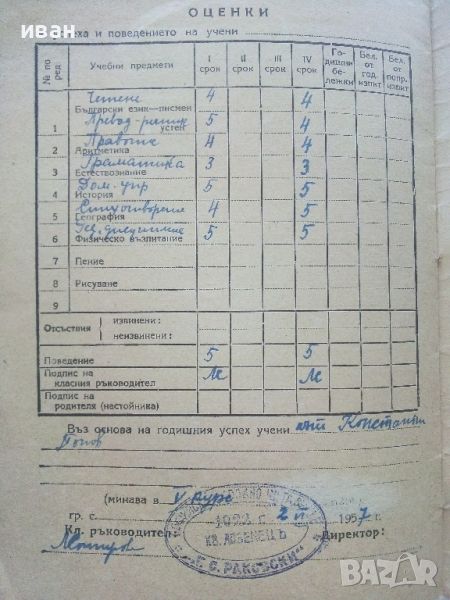 ОЦЕНКИ
еха и поведението на учени
№ по ред Учебни предмети I срок II срок III срок IV срок Годишни бележки Бел. от год. изпит Бел. от попр. изпит
Четене 4 4
Български език—писмен
1 Превод-разказ 5 4
устен
Правопис 4 4
2 Аритметика
Граматика 3 3
3 Естествознание
Дом. упр 5 5
4 История
Стихотворение 4 5
5 География
5 5
6 Физическо възпитание
7 Пение
8 Рисуване
9
Отсъствия извинени:
неизвинени:
Поведение 5 5
Подпис на класния ръководител
Подпис на родителя (настойника)
Въз основа на годишния успех учени Константин
Попов
(минава в V курс
гр. с. 1957 г.
Кл. ръководител: Директор:
КВ. АРБЕНЕЦЪ
„Г. С. РАКОВСКИ“
BAZAR
ivan